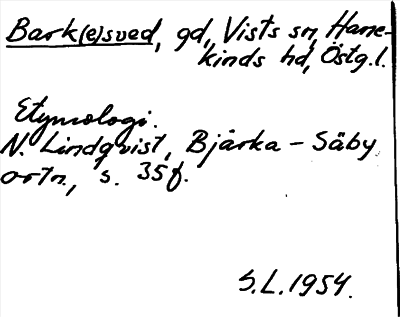 Bark(e)sved, gd, Vists sn, Hane-
kinds hd, Östg.l.
Etymologi.
N. Lindqvist, Bjärka - Säby
ortn., s. 35f.
S.L. 1954.